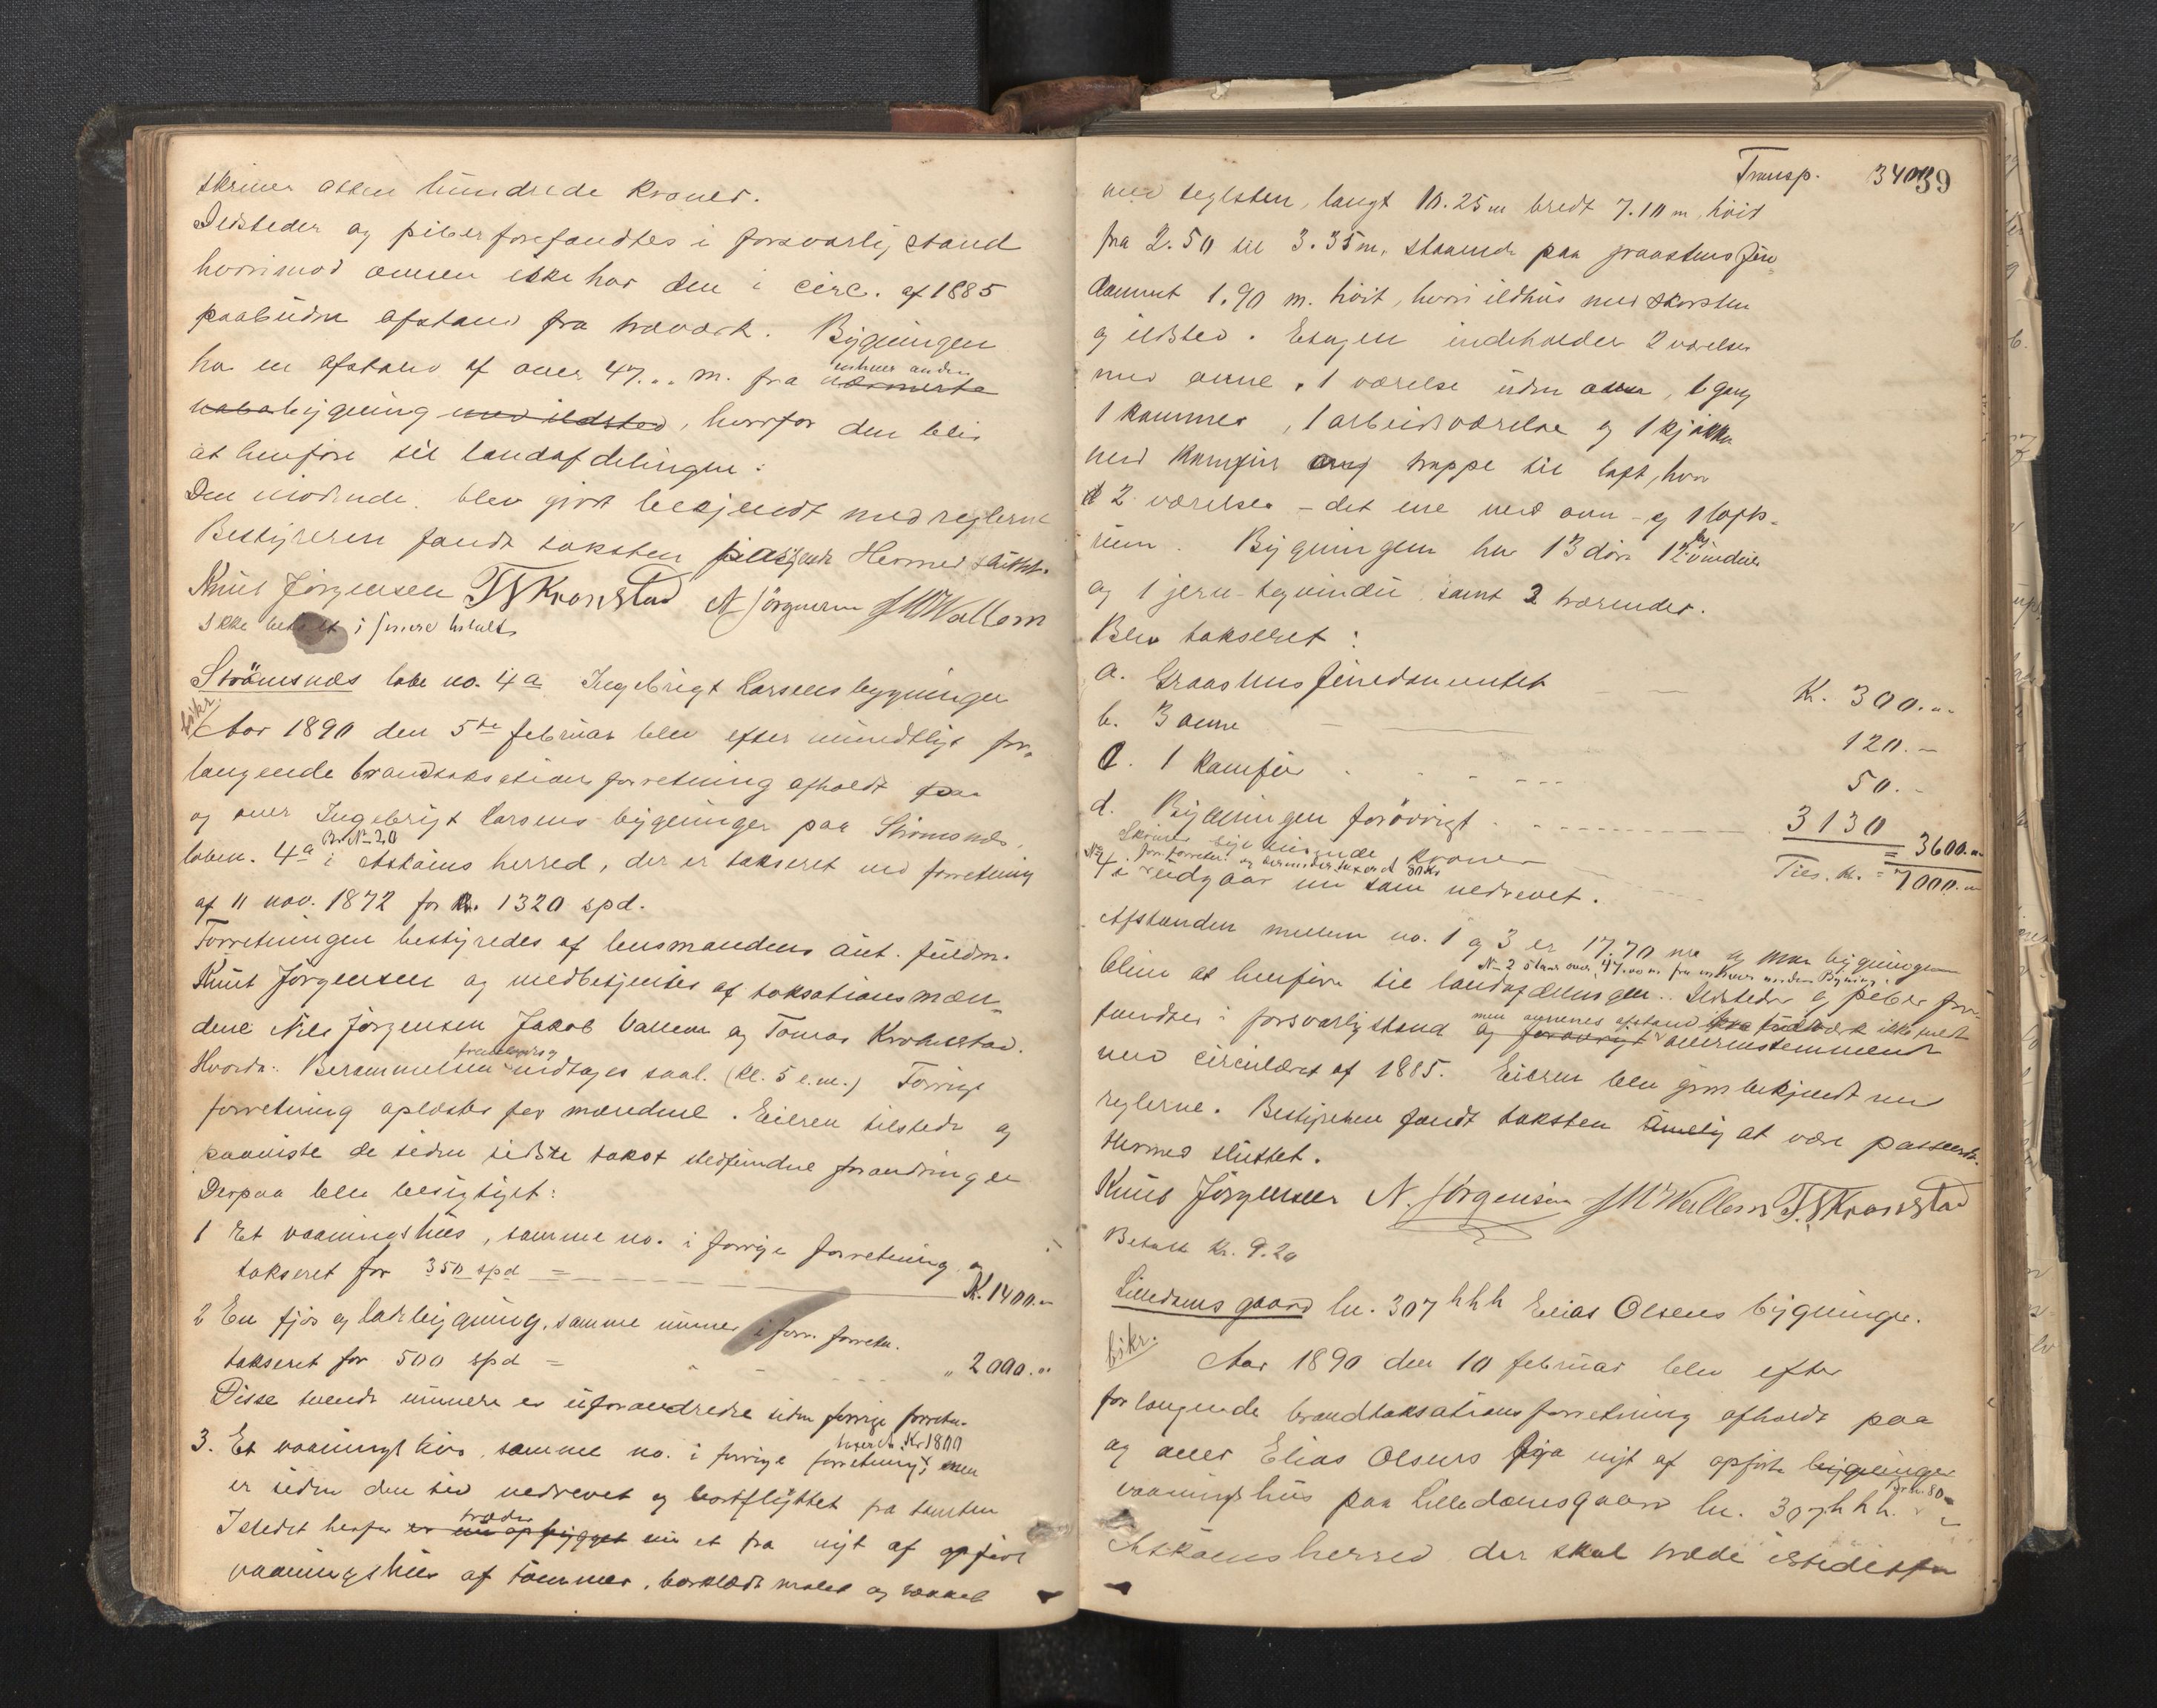 skriver otten hundrede kroner.
Ildsteder og piber forefandtes i forsvarlig stand
hvorimod ovnen ikke har den i circ. af 1885
paabudne afstand fra træværk. Bygningen
har en afstand af over 47.. m. fra enhver anden nærmeste
nabobygning med ildsted, hvorfor den blir
at henføre til landafdelingen.
Den mødende blev gjort bekjendt med reglerne
Bestyreren fandt taksten passende Hermed sluttet.
Knut Jørgensen T Kronstad N Jørgensen J M Vallem
Ikke betalt
Strömsnæs løbe no. 4a Ingebrigt Larsens bygninger
Aar 1890 den 5te februar blev efter mundtligt for-
langende brandtakstationsforretning afholdt paa
og over Ingebrigt Larsens bygninger paa Strømsnæs,
Br. No 20
løben. 4a i Askøens herred, der er takseret ved forretning
af 11 nov. 1872 for 1320 spd.
Forretningen bestyredes af lensmandens aut. fuldm.
Knut Jørgensen og medbetjentes af taksationsmæn-
dene Nils Jørgensen Jakob Vallem og Tomas Krohnstad.
Hvorda: Berammelsen fremlægges og indtages saal. (kl. 5 e.m.) Forrige
forretning oplæstes for mændene. Eieren tilstede og
paaviste de siden sidste takst stedfundne forandringer
Derpaa blev besigtiget:
1 Et vaaningshus, samme no. i forrige forretning og
takseret for 350 spd = K. 1400.-
2 En fjøs og ladebygning, samme numer i forr. forretn.
takseret for 500 spd = " 2000.-
Disse tvende numere er uforandrede siden forrige forretn.
3. Et vaaningshus, samme no. i forrige forretning, taxeret Kr 1800 men
er siden den tid nedrevet og bortflyttet fra tomten
Istedet herfor træder er nu opbygget nu et fra nyt af opført
vaaningshus af tømmer, bordklædt malet og tækket
Transp. 3400 39
med teglsten, langt 10.25 m bredt 7.10 m, høit
fra 2.50 til 3.35 m, staaende paa graastens fun-
dament 1.90 m. høit, hvori ildhus med skorsten
og ildsted. Etagen indeholder 2 værelser
med ovne, 1 værelse uden ovn, 1 gang
1 kammer, 1 arbeidsværelse og 1 kjøkken
med Komfur og trappe til loft, hvor
2 værelser – det ene med ovn – og 1 lofts-
rum. Bygningen har 13 døre 12 fag vinduer
og 1 jern-tagvindu samt 2 værender.
Blev takseret:
a. Graastensfundamentet K. 300.-
b. 3 ovne 120.-
c. 1 Komfur 50.-
d. Bygningen forøvrigt 3130 = 3600.-
Skriver syv tusende kroner Tils. Kr. = 7000.-
No 4 i forr. forretn. og dermed taxeret 80 Kr
udgaar nu som nedrevet.
Afstanden mellem no. 1 og 3 er 17.70 m
No 2 staar over 47.00 m. fra enhver anden Bygning.
blive at henføre til landafdelingen. Ildsteder og piber fore-
fandtes i forsvarlig stand men ovnenes afstand fra træværk ikke
og forøvrigt overensstemmende
med circulæret af 1885. Eieren blev gjort bekjendt med
reglerne. Bestyreren fandt taksten at være passende.
Hermed sluttet.
Knut Jørgensen N. Jørgensen J M Vallem T. Kronstad
Betalt Kr. 9.20
Lilledamsgaard ln. 307 hhh Elias Olsens bygninger.
Aar 1890 den 10 februar blev efter
forlangende brandtaksationsforretning afholdt paa
og over Elias Olsens fra nyt af opførte bygninger
vaaningshus paa Lilledamsgaard ln. 307 hhh. i
Askøens herred der skal træde istedetfor